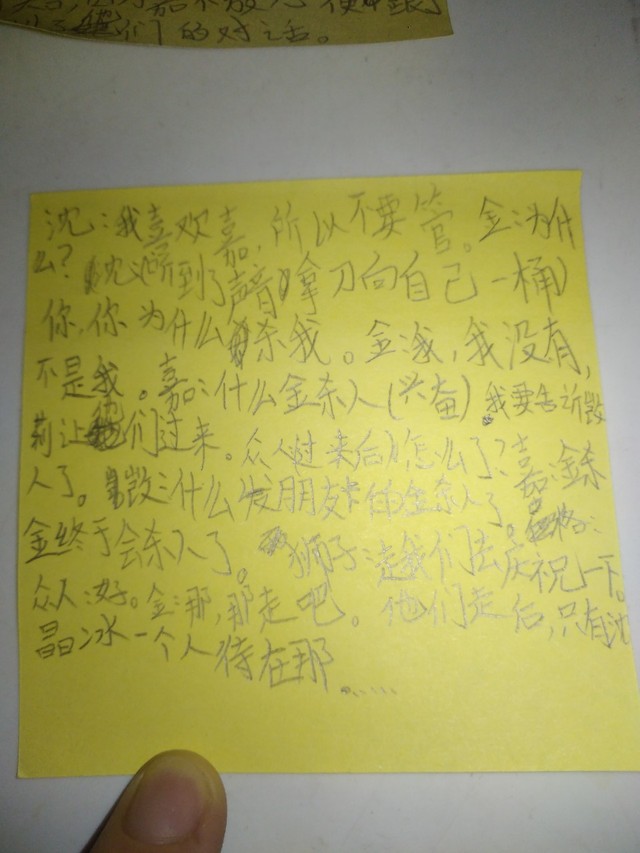 们的对话。
沈：我喜欢嘉，所以不要管。金：为什
么？（沈听到了声音，拿刀向自己一桶）
你，你为什么杀我。金：我，我没有，
不是我。嘉：什么金杀人（兴奋）我要告诉毁
莉让他们过来。众人（过来后）怎么了？嘉：金杀
人了。毁：什么发朋友卡的金杀人了。
金终于会杀人了。狮子：走我们去庆祝一下。
众人：好。金：那，那走吧。他们走后，只有沈
晶冰一个人待在那……